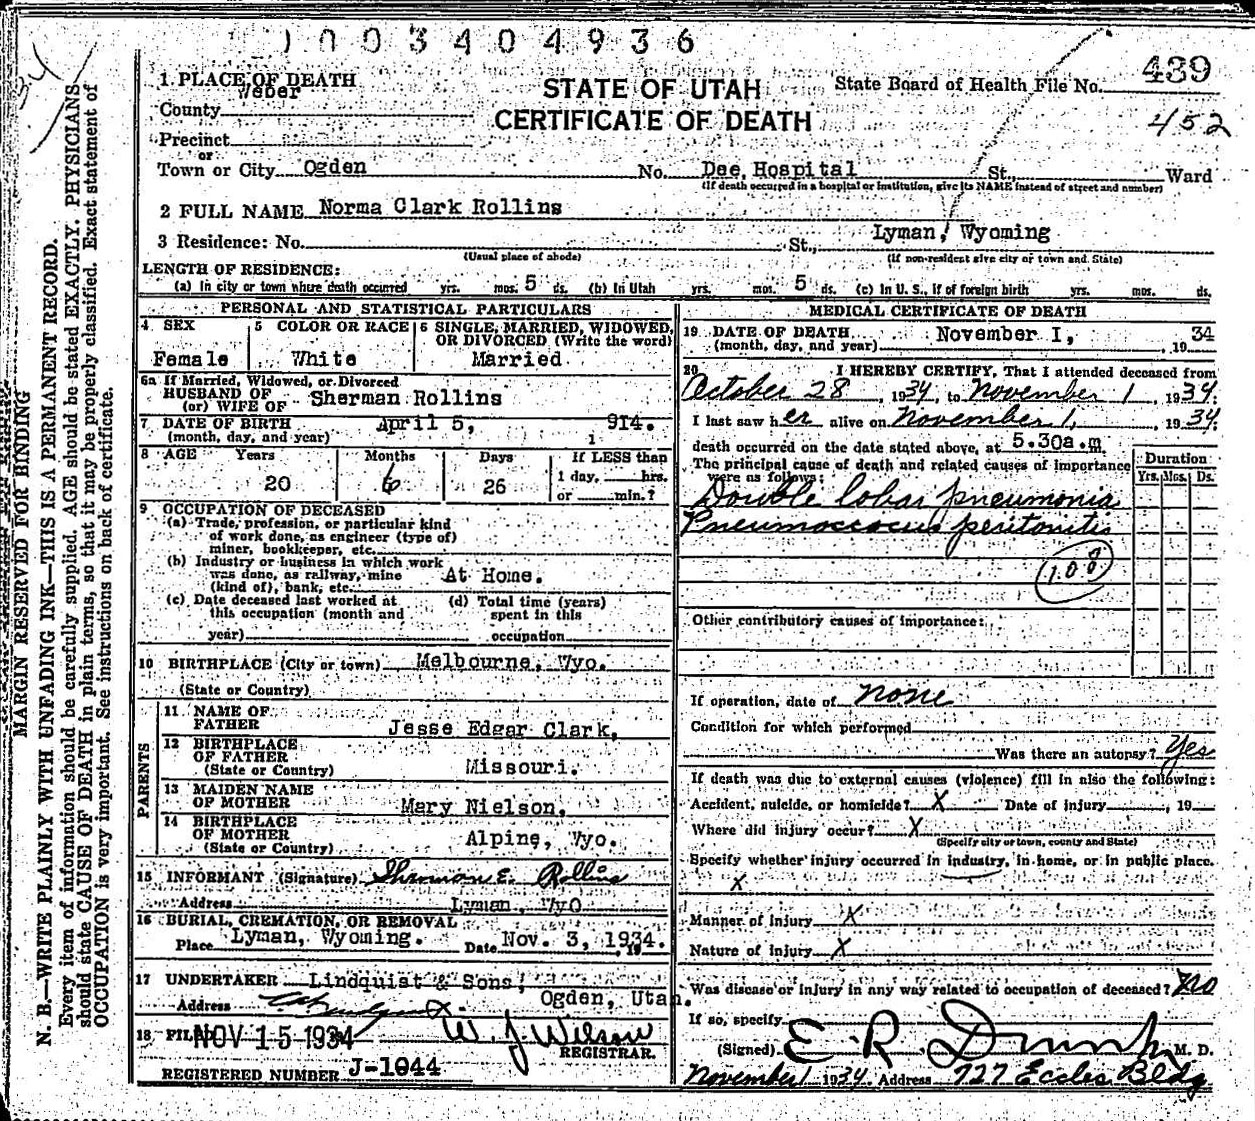 1003404936
34
439
452
1 PLACE OF DEATH
Weber
County
STATE OF UTAH
State Board of Health File No.
CERTIFICATE OF DEATH
Precinct
or
Town or City Ogden No. Dee Hospital St., Ward
(If death occurred in a hospital or institution, give its NAME instead of street and number)
2 FULL NAME Norma Clark Rollins
3 Residence: No. St., Lyman, Wyoming
(Usual place of abode) (If non-resident give city or town and State)
LENGTH OF RESIDENCE:
(a) In city or town where death occurred yrs. mos. 5 ds. (b) In Utah yrs. mos. 5 ds. (c) In U. S., if of foreign birth yrs. mos. ds.
PERSONAL AND STATISTICAL PARTICULARS
4 SEX 5 COLOR OR RACE 6 SINGLE, MARRIED, WIDOWED, OR DIVORCED (Write the word)
Female White Married
6a If Married, Widowed, or Divorced
HUSBAND OF
(or) WIFE OF Sherman Rollins
7 DATE OF BIRTH April 5, 1914.
(month, day, and year)
8 AGE Years Months Days If LESS than
20 6 26 1 day, hrs.
or min.?
9 OCCUPATION OF DECEASED
(a) Trade, profession, or particular kind
of work done, as engineer (type of)
miner, bookkeeper, etc.
(b) Industry or business in which work
was done, as railway, mine
(kind of), bank, etc. At Home.
(c) Date deceased last worked at (d) Total time (years)
this occupation (month and spent in this
year) occupation
10 BIRTHPLACE (City or town) Melbourne, Wyo.
(State or Country)
PARENTS
11 NAME OF
FATHER Jesse Edgar Clark,
12 BIRTHPLACE
OF FATHER Missouri.
(State or Country)
13 MAIDEN NAME
OF MOTHER Mary Nielson,
14 BIRTHPLACE
OF MOTHER Alpine, Wyo.
(State or Country)
15 INFORMANT (Signature) Sherman E. Rollins
Address Lyman, WyO
16 BURIAL, CREMATION, OR REMOVAL
Place Lyman, Wyoming. Date Nov. 3, 1934.
17 UNDERTAKER Lindquist & Sons,
Address Ogden, Utah.
18 FILED NOV 15 1934 W. J. Wilson
REGISTRAR.
REGISTERED NUMBER J-1044
MEDICAL CERTIFICATE OF DEATH
19 DATE OF DEATH November 1, 1934
(month, day, and year)
20 I HEREBY CERTIFY, That I attended deceased from
October 28, 1934, to November 1, 1934;
I last saw her alive on November 1, 1934;
death occurred on the date stated above, at 5.30a.m
The principal cause of death and related causes of importance
were as follows:
Duration
Yrs. Mos. Ds.
Double lobar pneumonia
Pneumoccocus peritonitis
100
Other contributory causes of importance:
If operation, date of none
Condition for which performed
Was there an autopsy? Yes
If death was due to external causes (violence) fill in also the following:
Accident, suicide, or homicide? X Date of injury , 19
Where did injury occur? X
(Specify city or town, county and State)
Specify whether injury occurred in industry, in home, or in public place.
X
Manner of injury X
Nature of injury X
Was disease or injury in any way related to occupation of deceased? No
If so, specify
(Signed) E. R. M. D.
November 1 1934. Address 727 Eccles Bldg
MARGIN RESERVED FOR BINDING
N. B.—WRITE PLAINLY WITH UNFADING INK—THIS IS A PERMANENT RECORD.
Every item of information should be carefully supplied. AGE should be stated EXACTLY. PHYSICIANS
should state CAUSE OF DEATH in plain terms, so that it may be properly classified. Exact statement of
OCCUPATION is very important. See instructions on back of certificate.